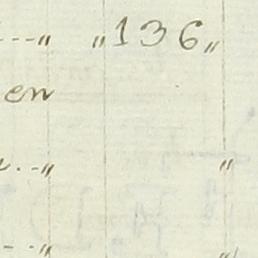 ---" "136"
en
.-" "
--" "